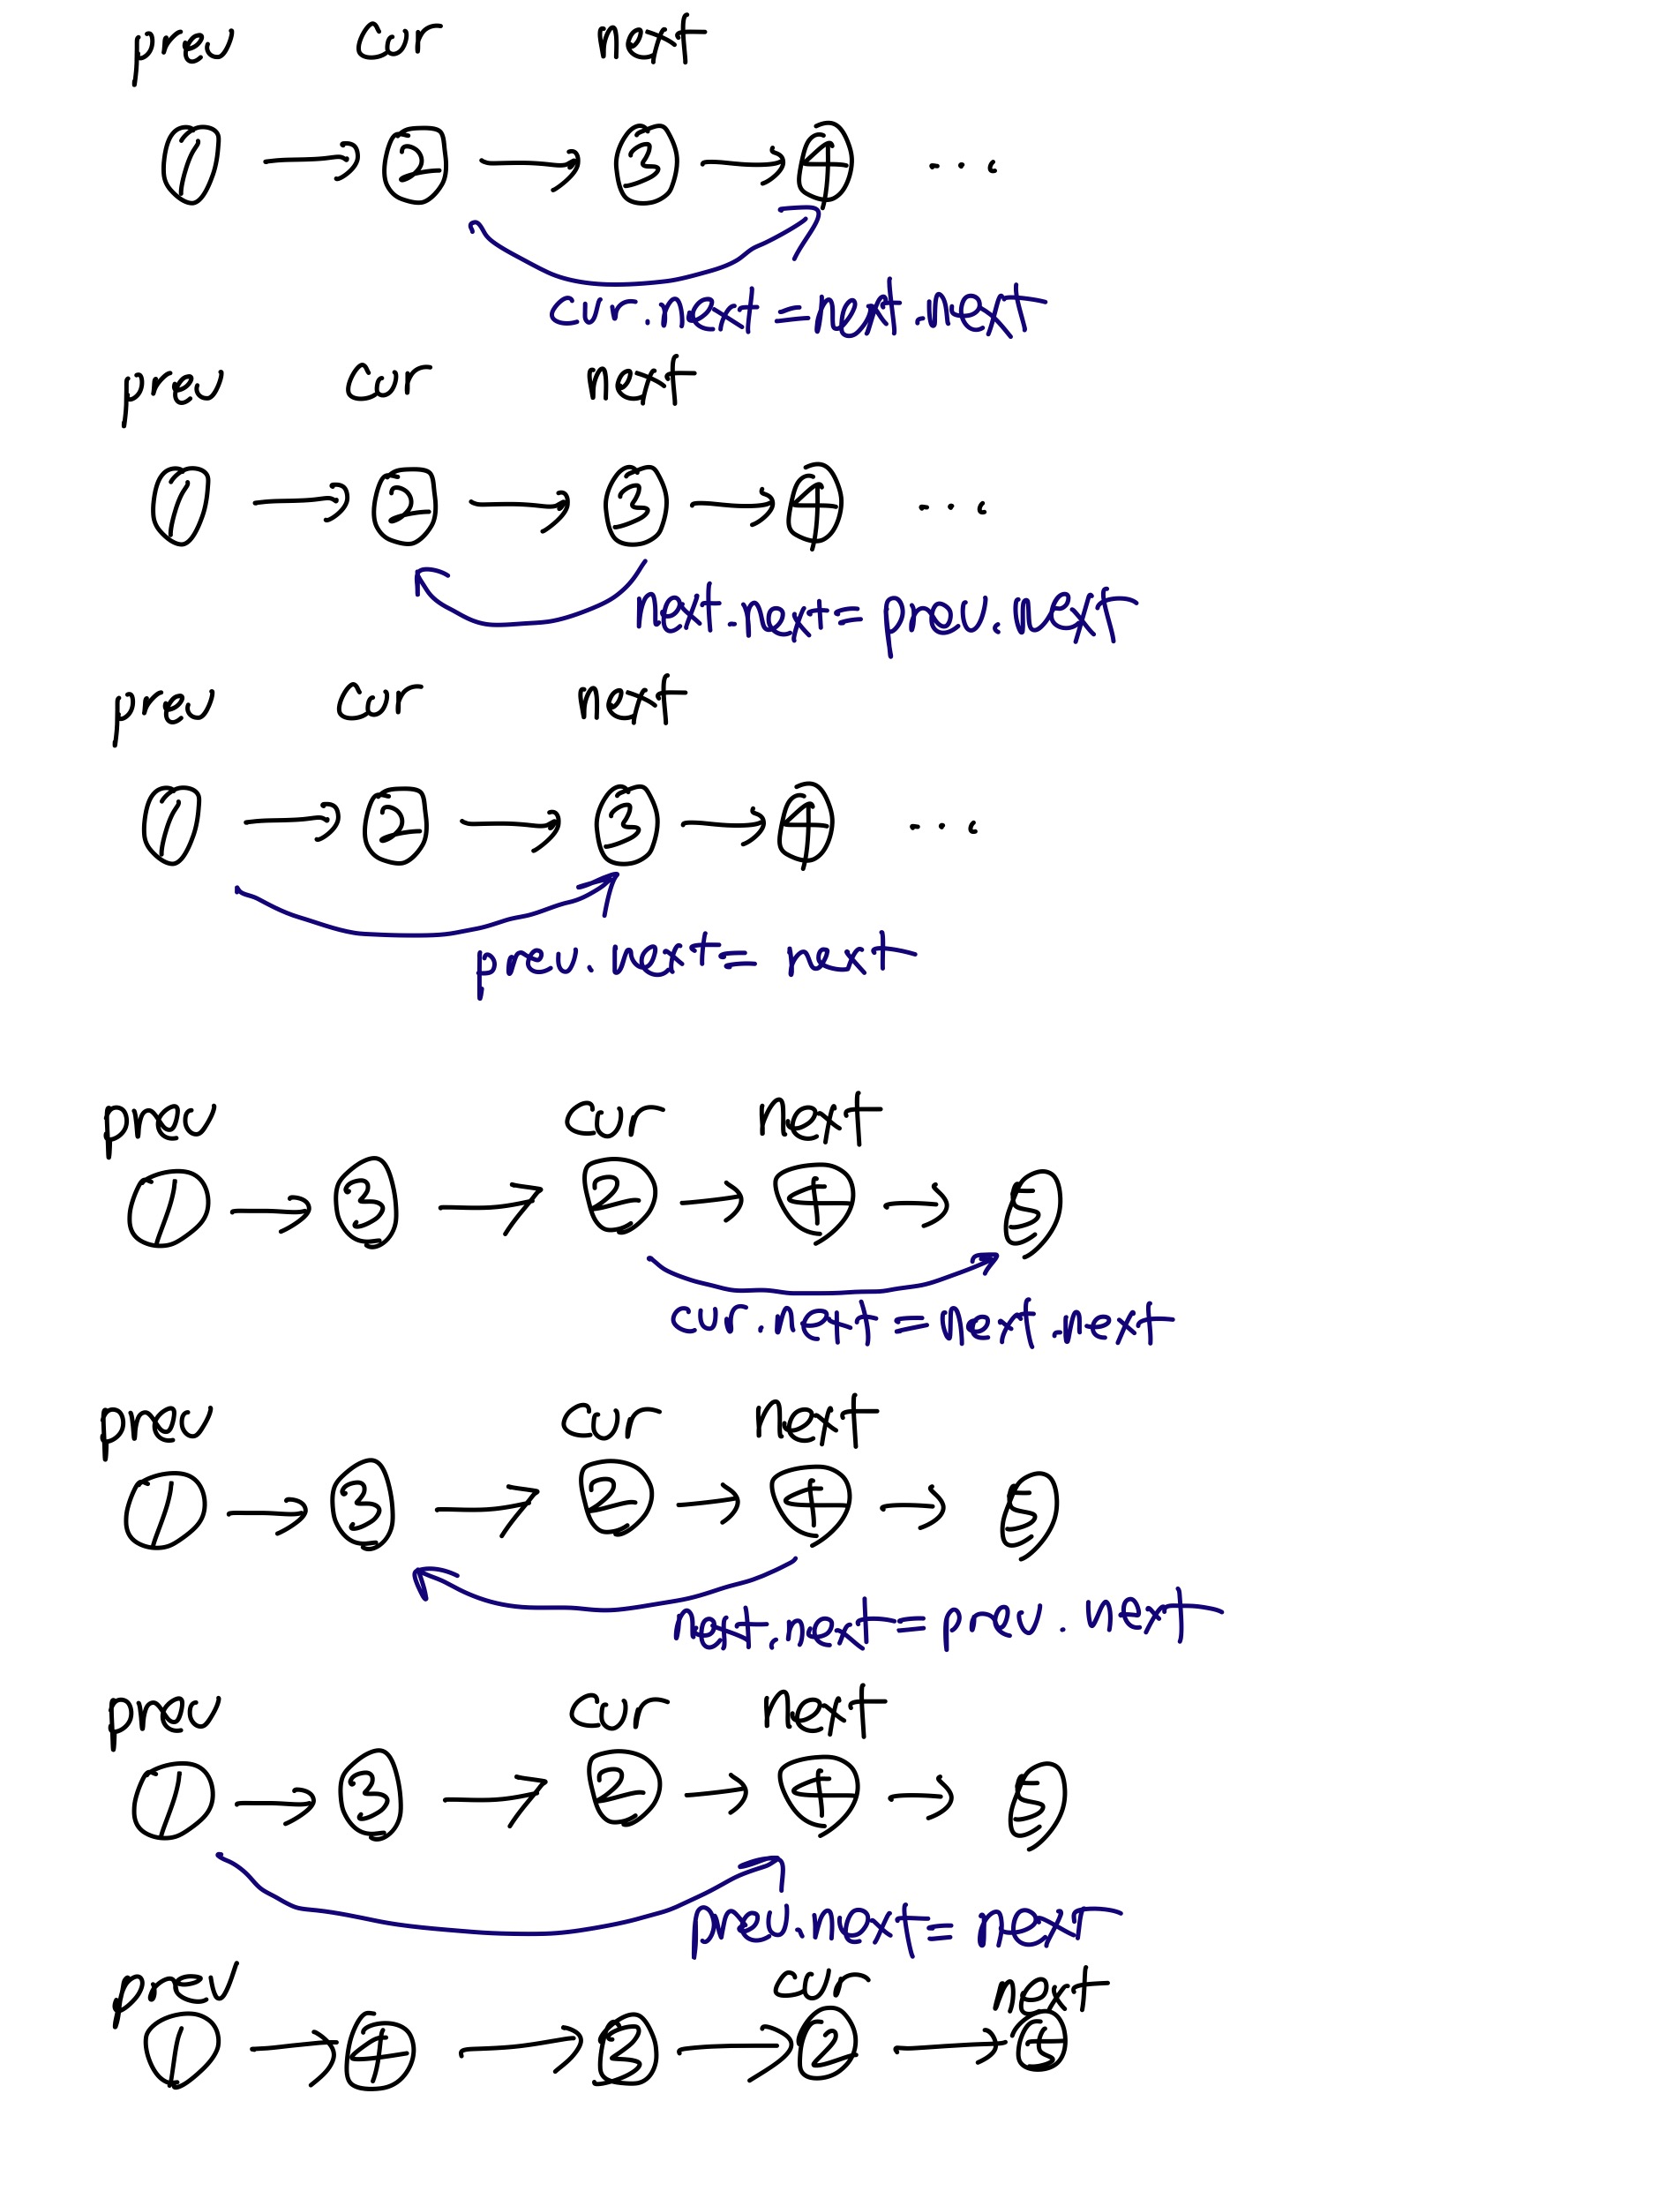 prev cur next
1 → 2 → 3 → 4 ...
cur.next = next.next
prev cur next
1 → 2 → 3 → 4 ...
next.next = prev.next
prev cur next
1 → 2 → 3 → 4 ...
prev.next = next
prev cur next
1 → 3 → 2 → 4 → 5
cur.next = next.next
prev cur next
1 → 3 → 2 → 4 → 5
next.next = prev.next
prev cur next
1 → 3 → 2 → 4 → 5
prev.next = next
prev cur next
1 → 4 → 3 → 2 → 5